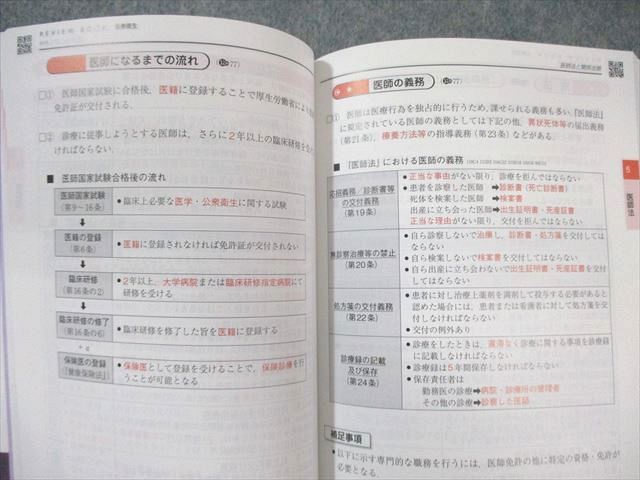 公衆衛生
医師になるまでの流れ
77)
□① 医師国家試験に合格後，医籍に登録することで厚生労働省により
免許証が交付される．
□② 診療に従事しようとする医師は，さらに2年以上の臨床研修を
ければならない．
■ 医師国家試験合格後の流れ
医師国家試験
（第9〜16条）
●臨床上必要な医学・公衆衛生に関する試験
医籍の登録
（第6条）
●医籍に登録されなければ免許証が交付されない
臨床研修
（第16条の2）
●2年以上，大学病院または臨床研修指定病院にて
研修を受ける
臨床研修の修了
（第16条の6）
●臨床研修を修了した旨を医籍に登録する
+α
保険医の登録
『健康保険法』
●保険医として登録を受けることで，保険診療を行
うことが可能となる
医師法と関係法規
医師の義務
77)
医師は医療行為を独占的に行うため，課せられる義務も多い．『医師法』
に規定されている医師の義務としては下記の他，異状死体等の届出義務
（第21条），療養方法等の指導義務（第23条）などがある．
■ 『医師法』における医師の義務
応招義務／診断書等
の交付義務
（第19条）
●正当な事由がない限り，診療を拒んではならない
●患者を診察した医師 ➡診断書（死亡診断書）
死体を検案した医師 ➡検案書
出産に立ち会った医師➡出生証明書・死産証書
正当な理由がない限り，交付を拒んではならない
無診察治療等の禁止
（第20条）
●自ら診察しないで治療し，診断書・処方箋を交付しては
ならない
●自ら検案しないで検案書を交付してはならない
●自ら出産に立ち会わないで出生証明書・死産証書を交付
してはならない
処方箋の交付義務
（第22条）
●患者に対し治療上薬剤を調剤して投与する必要があると
認めた場合には，患者または看護者に対して処方箋を交
付しなければならない
●交付の例外あり
診療録の記載
及び保存
（第24条）
●診療をしたときは，遅滞なく診療に関する事項を診療録
に記載しなければならない
●診療録は5年間保存しなければならない
●保存責任者は
勤務医の診療➡病院・診療所の管理者
その他の診療➡診察した医師
5
医師法
補足事項
●以下に示す専門的な職務を行うには，医師免許の他に特定の資格・免許が
必要となる．